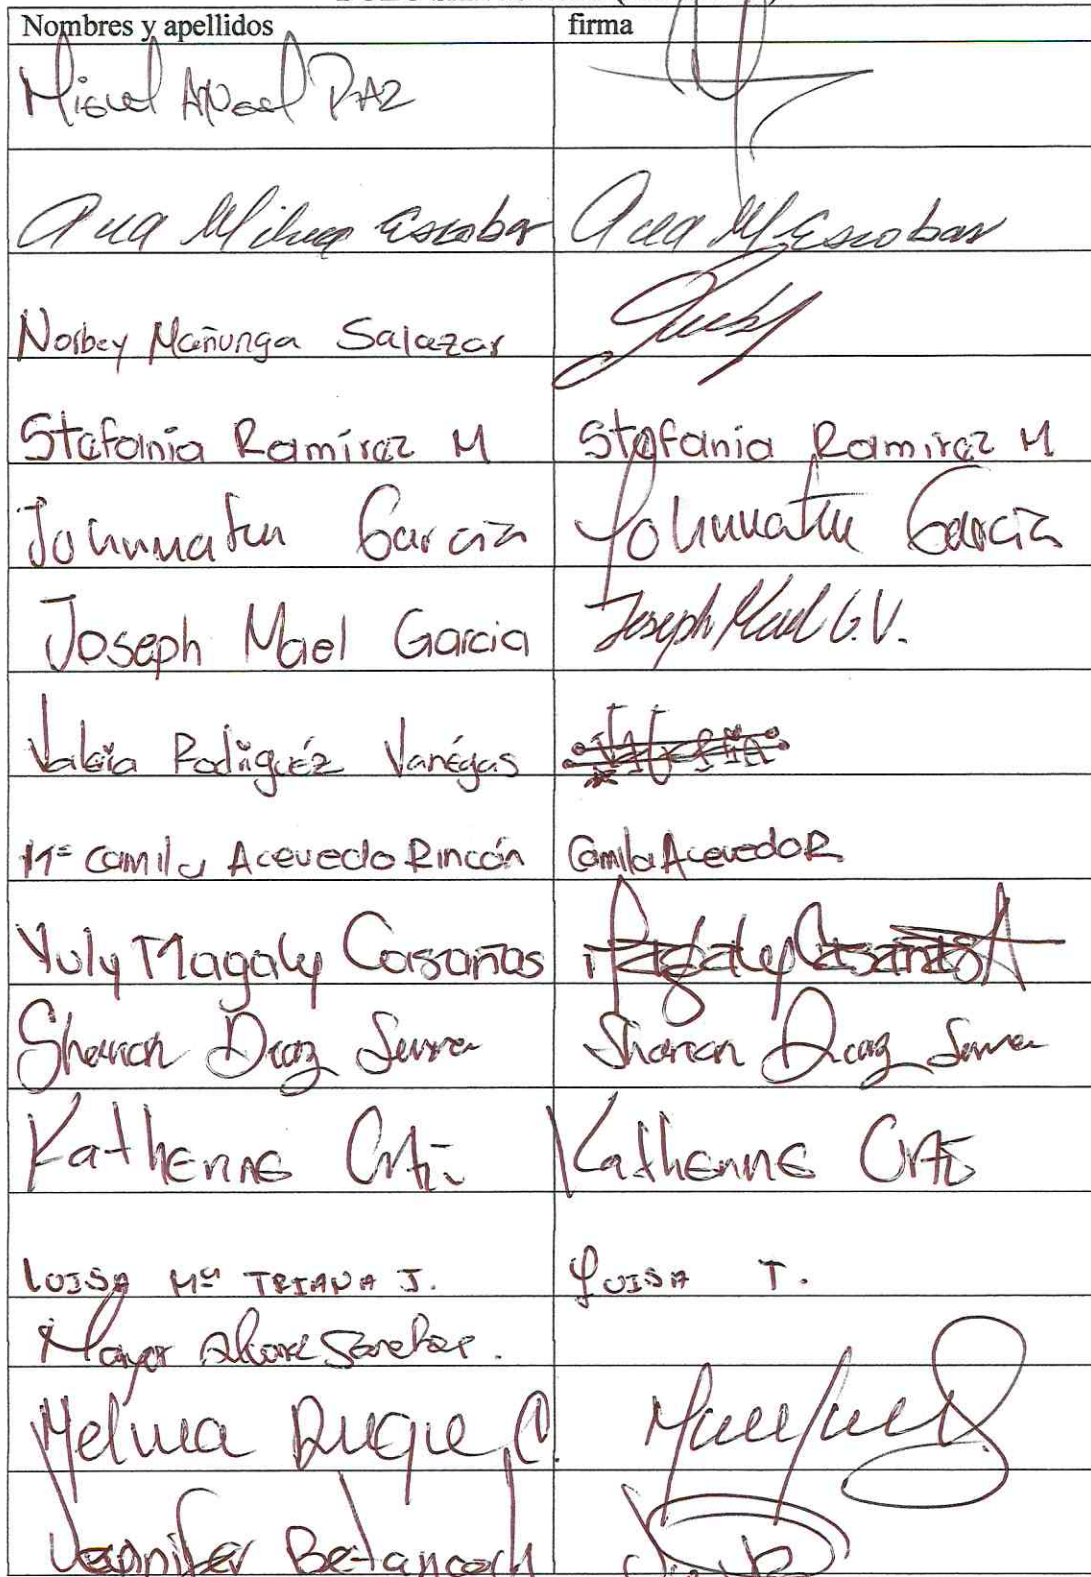 Nombres y apellidos firma
Miguel Angel PAZ
Ana Milena Escobar Ana M Escobar
Norbey Mañunga Salazar
Stefania Ramírez M Stefania Ramirez M
Johnnatan Garcia Johnnatan Garcia
Joseph Mael Garcia Joseph Mael G.V.
Valeria Rodriguéz Vanégas Valeria
Mª Camila Acevedo Rincón Camila Acevedo R
Yuly Magaly Casañas Magaly Casañas A
Sharon Diaz Serna Sharon Diaz Serna
Katherine Ortiz Katherine Ortiz
LUISA Mª TRIANA J. LUISA T.
Sanchez.
Melina Duque C
Jennifer Betancourt